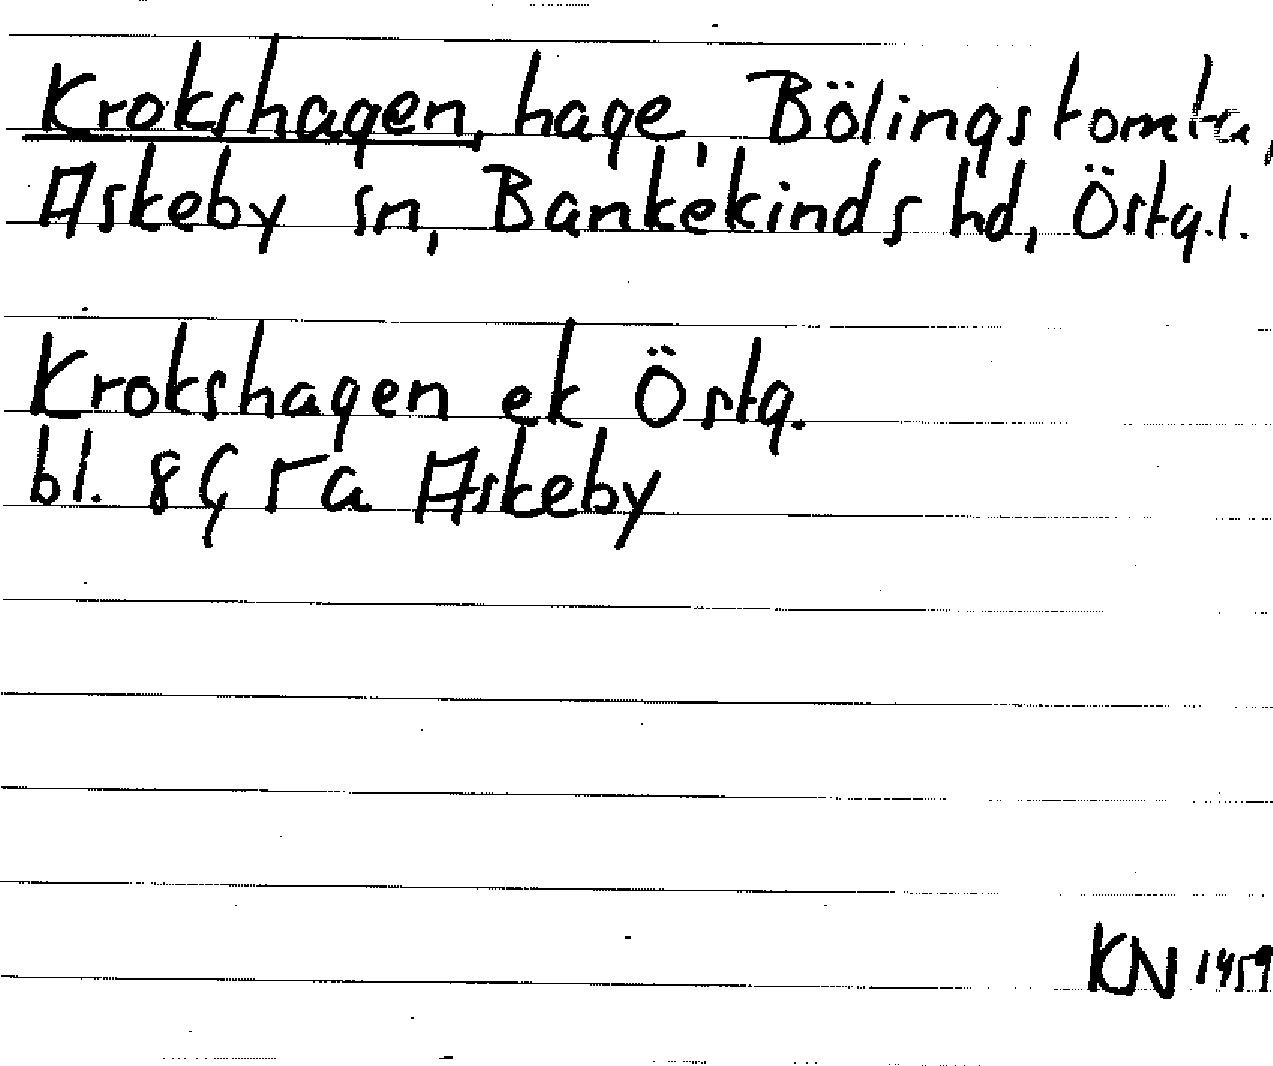 Krokshagen, hage, Bölingstomta,
Askeby sn, Bankekinds hd, Östg.l.
Krokshagen ek Östg.
bl. 8G 5a Askeby
KN 1959